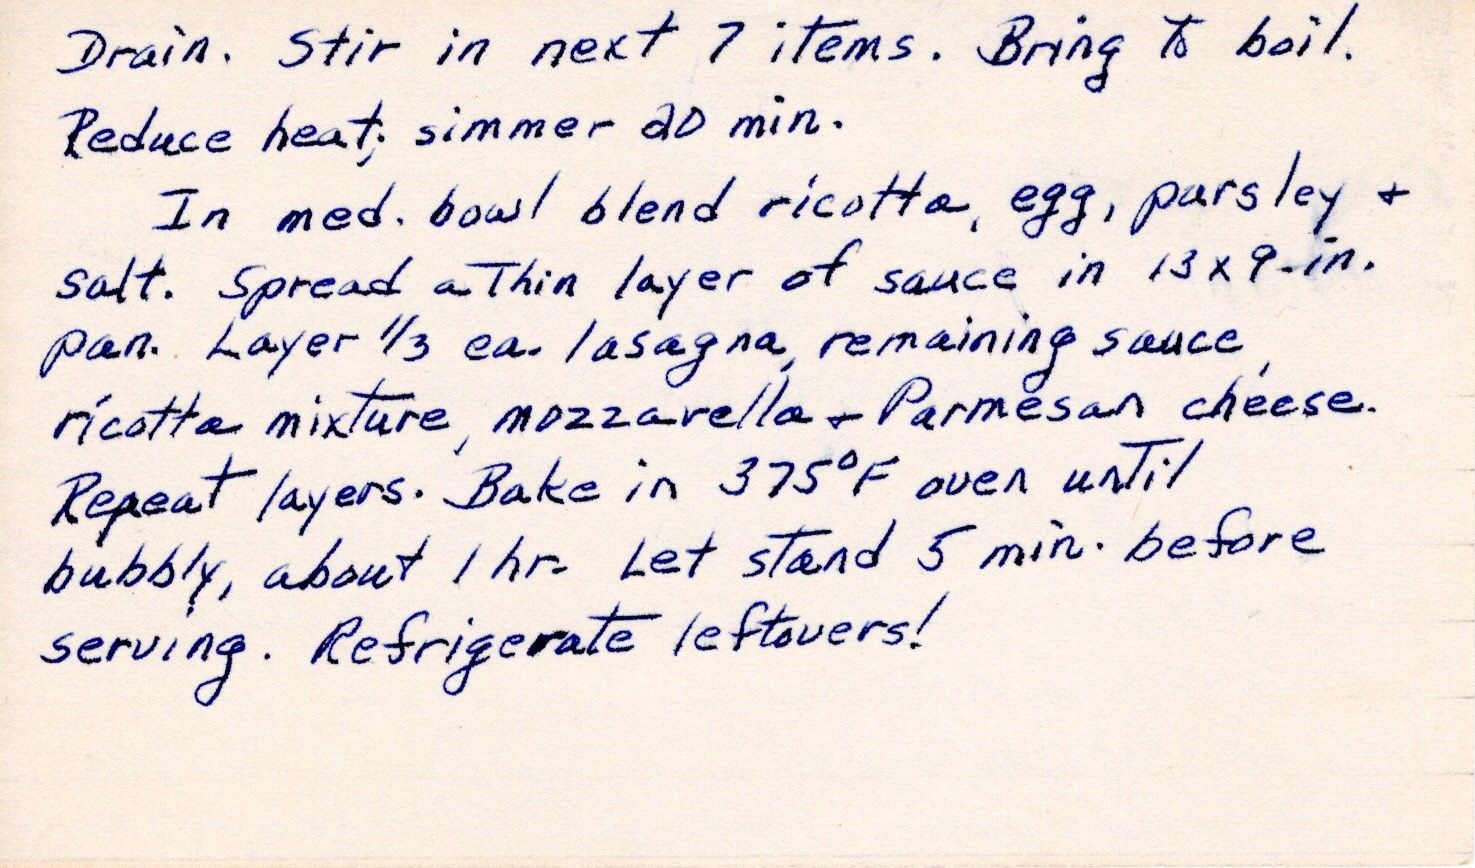 Drain. Stir in next 7 items. Bring to boil.
Reduce heat; simmer 20 min.
In med. bowl blend ricotta, egg, parsley +
salt. Spread a thin layer of sauce in 13 x 9-in.
pan. Layer 1/3 ea. lasagna, remaining sauce,
ricotta mixture, mozzarella + Parmesan cheese.
Repeat layers. Bake in 375°F oven until
bubbly, about 1 hr. Let stand 5 min. before
serving. Refrigerate leftovers!